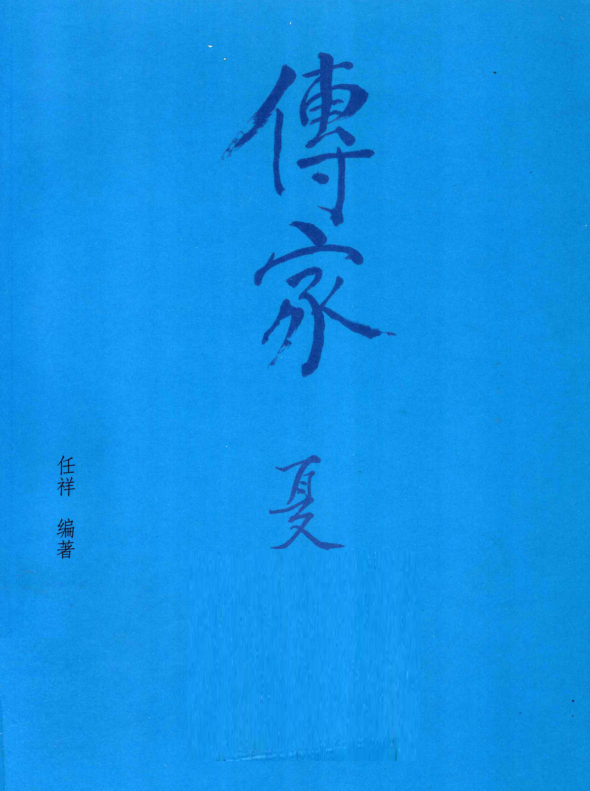 傳家
夏
任祥 编著